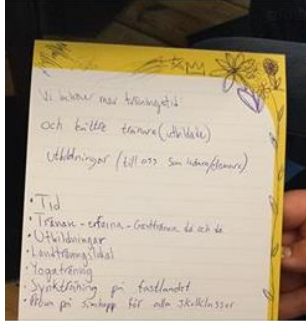 Vi behöver mer träningstid
och bättre tränare (utbildade)
utbildningar (till oss som ledare/tränare)
• Tid
• Tränare - erfarna - Gästtränare då och då
• Utbildningar
• Landträningslokal
• Yogaträning
• Synkträning på fastlandet
• Prova på simhopp för alla skolklasser